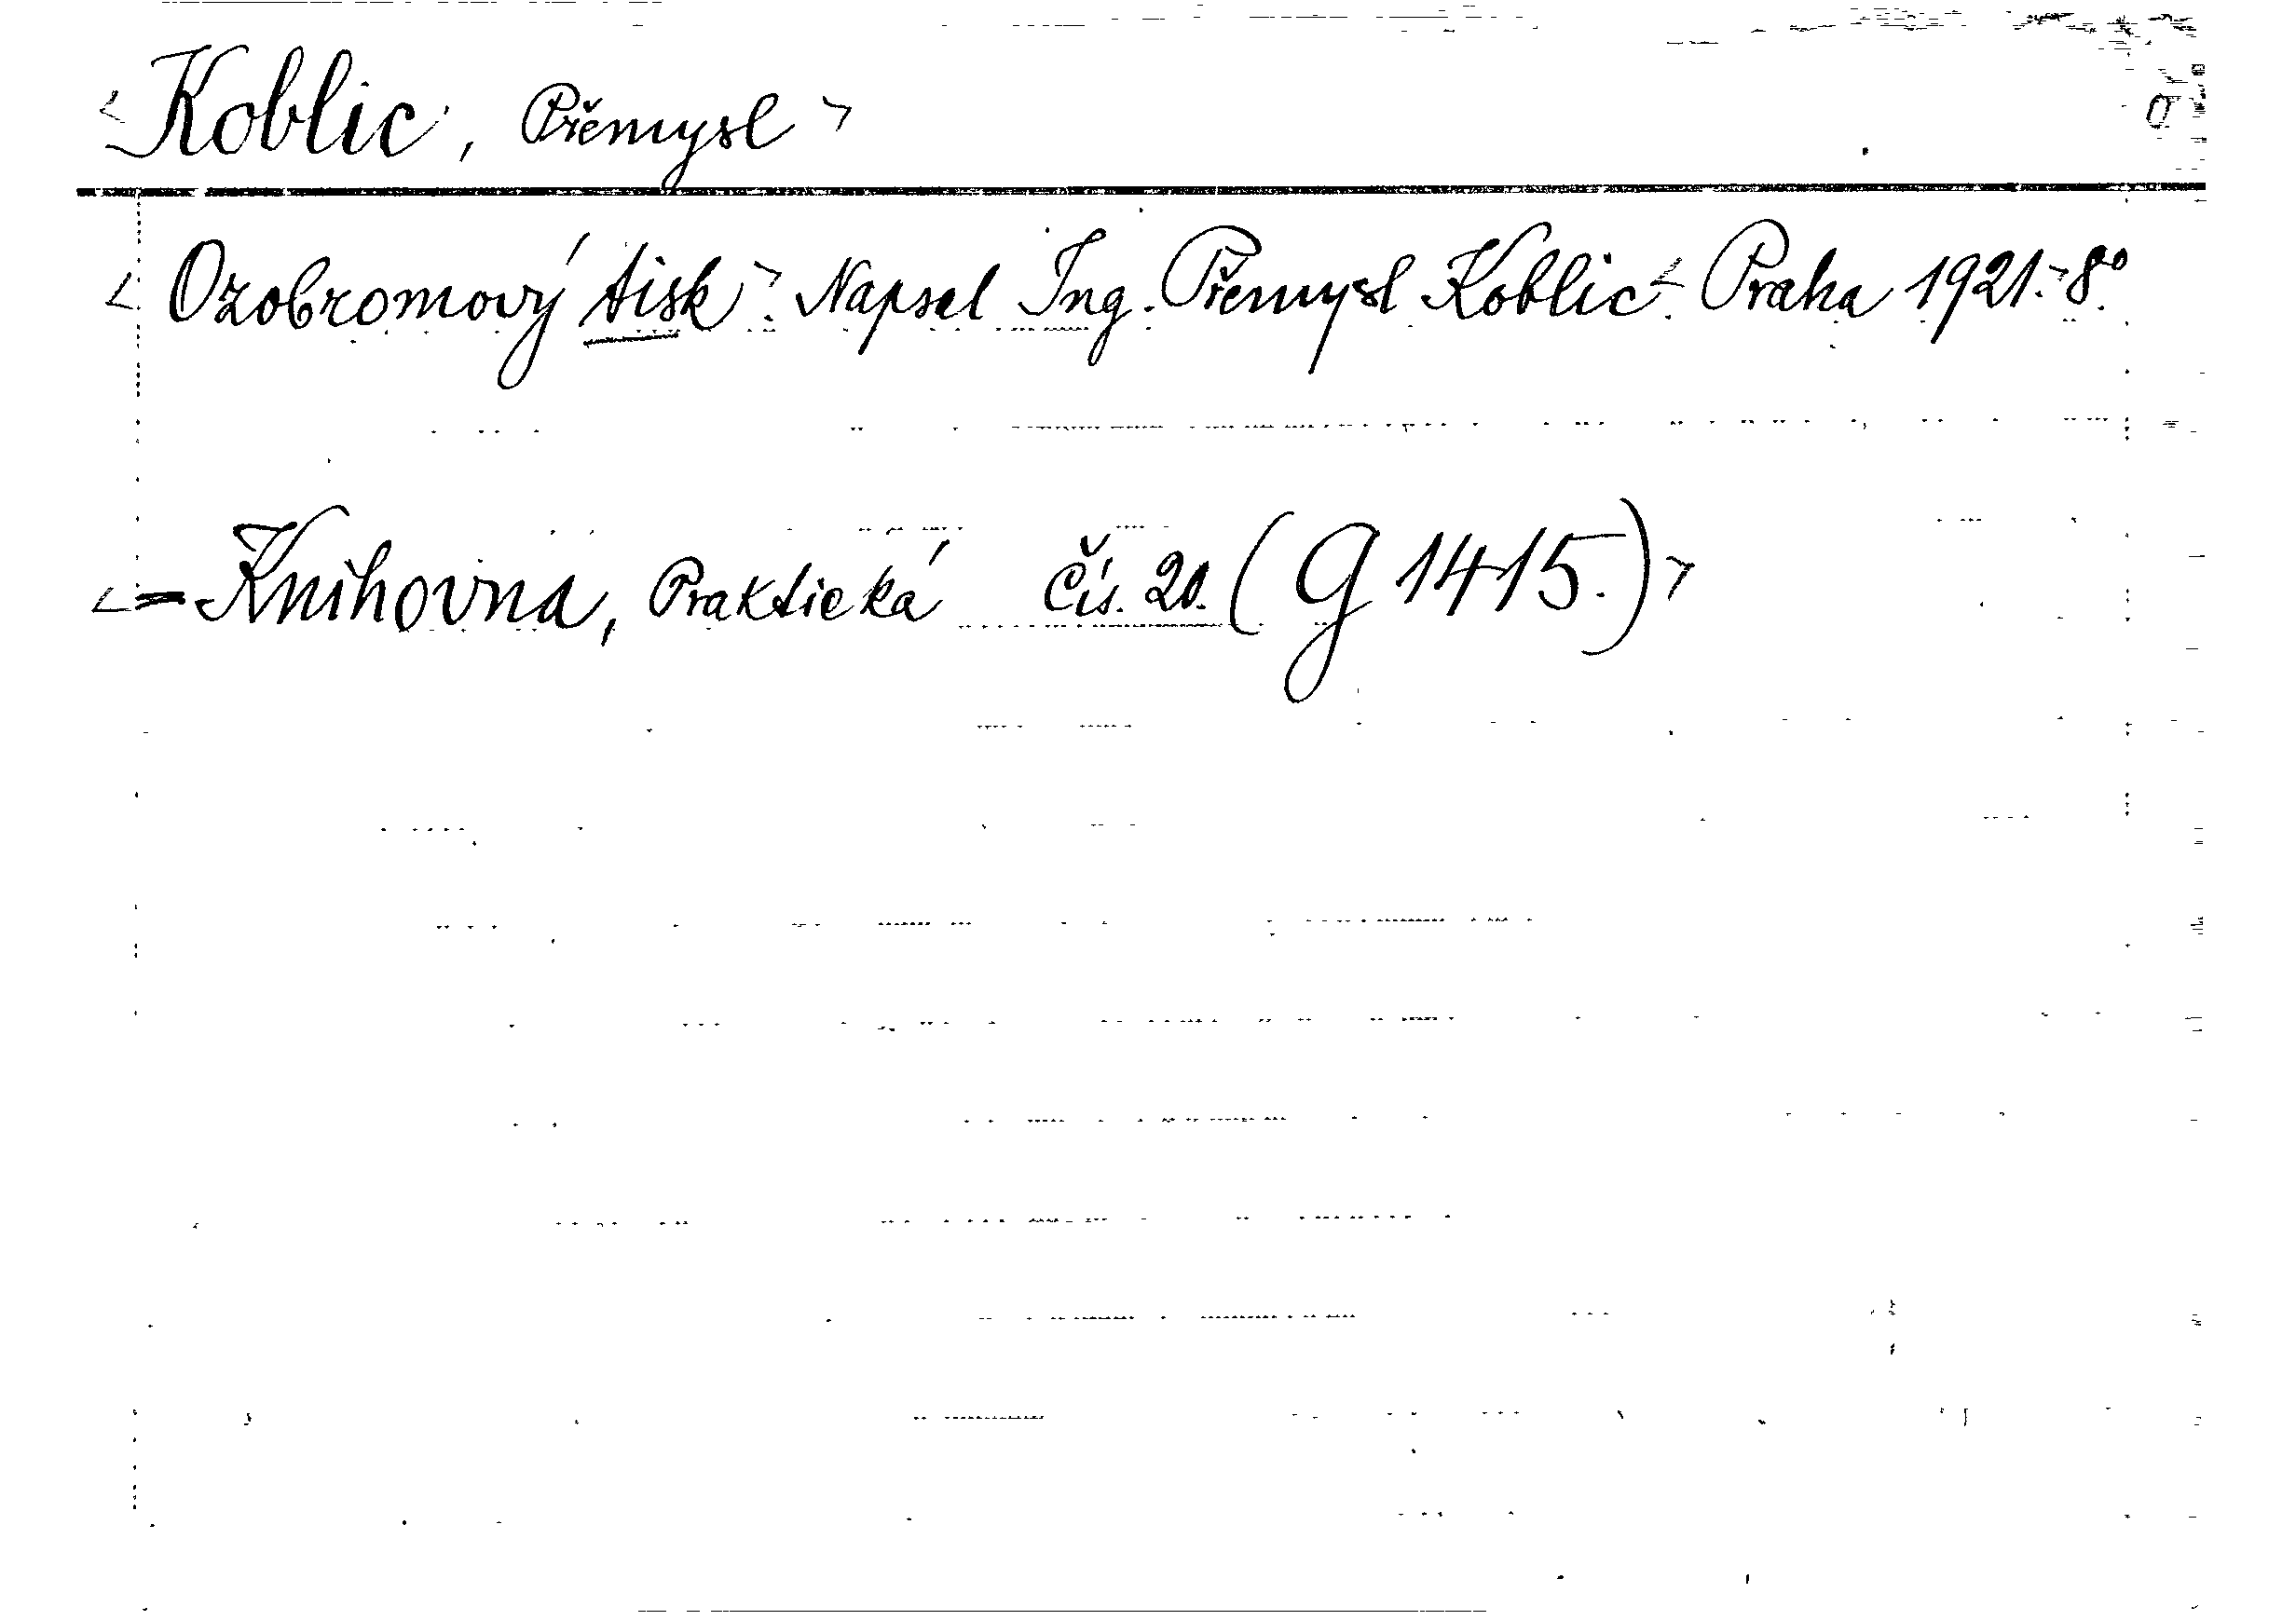 <Koblic, Přemysl>
<Ozobromový tisk>. Napsal Ing. Přemysl Koblic.<Praha 1921.>8°.
<=Knihovna, Praktická Čís. 20. (G 1415.)>